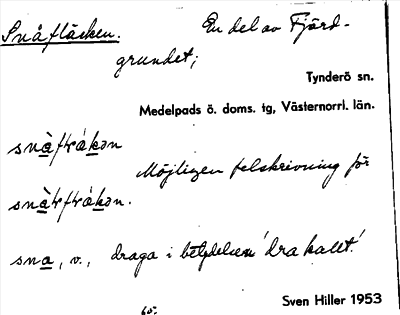 Snåfläcken. En del av Fjärd-
grundet;
Tynderö sn.
Medelpads ö. doms. tg, Västernorrl. län.
Möjligen felskrivning för
sna, v., draga i betydelsen 'dra kallt'.
Sven Hiller 1953